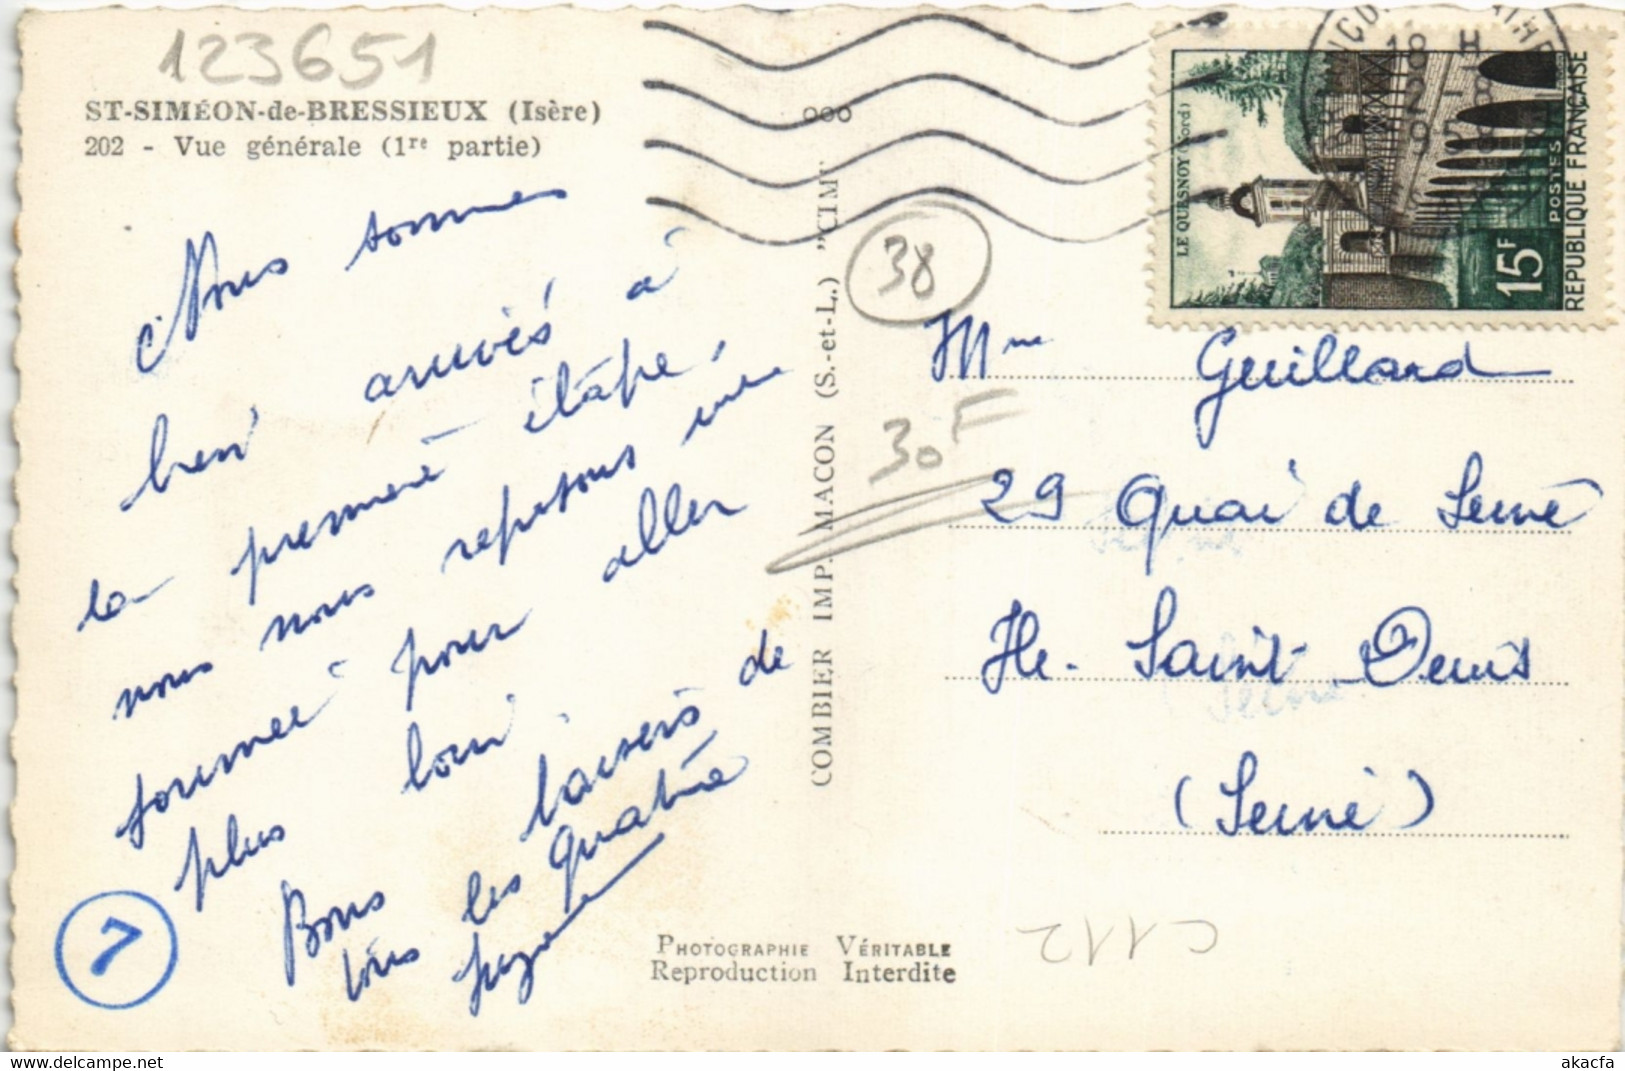 123651
ST-SIMÉON-de-BRESSIEUX (Isère)
202 - Vue générale (1re partie)
Nous sommes
bien arrivés à
la première étape,
nous nous reposons une
journée pour aller
plus loin
Bons baisers de
tous les quatre
Suzanne
7
PHOTOGRAPHIE VÉRITABLE
Reproduction Interdite
COMBIER IMP. MACON (S.-et-L.) "CIM"
ooo
38
30F
LE QUESNOY (Nord)
15F
POSTES
REPUBLIQUE FRANÇAISE
18 H
Mme Guillard
29 Quai de Seine
Ile-Saint-Denis
(Seine)
C112
akacfa